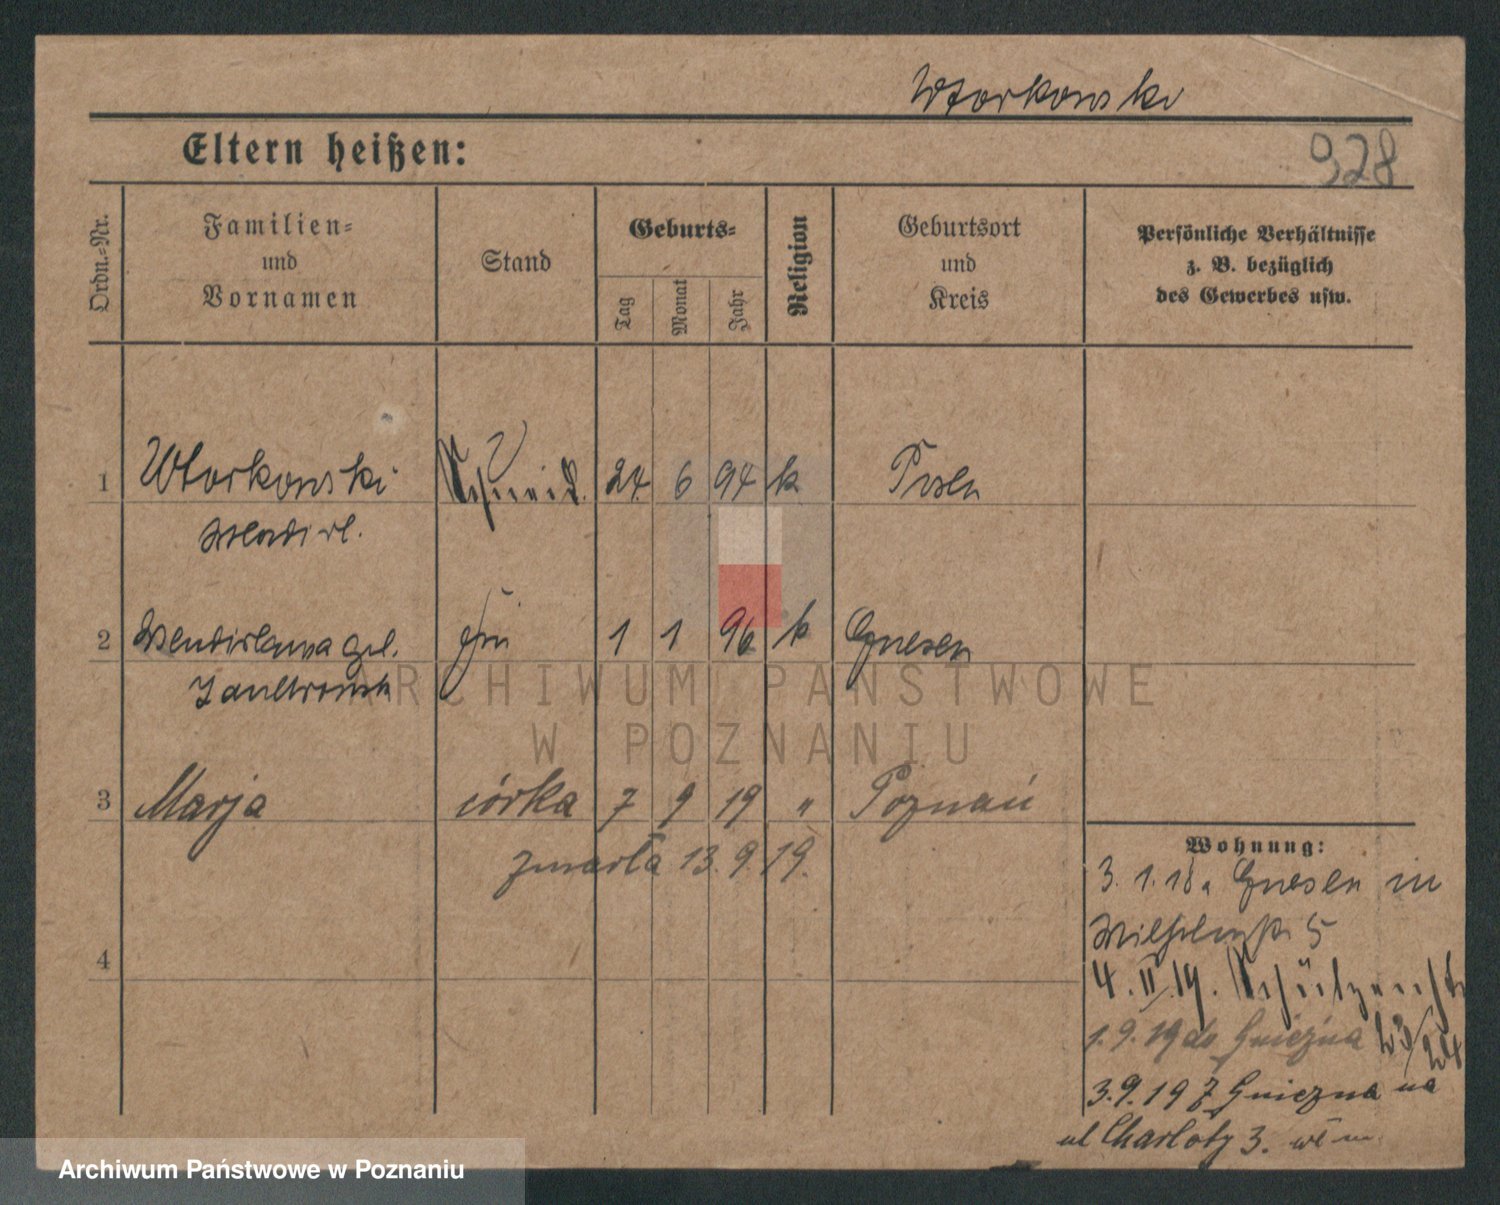 Wtorkowski
Eltern heißen:
928
Ordn.-Nr.
Familien-
und
Vornamen
Stand
Geburts-
Tag
Monat
Jahr
Religion
Geburtsort
und
Kreis
Persönliche Verhältnisse
z. B. bezüglich
des Gewerbes usw.
1 Wtorkowski Schneid. 24 6 94 k Posen
Wladisl.
2 Wendislawa geb. Fru 1 1 96 k Gnesen
ARCHIWUM PAŃSTWOWE
W POZNANIU
3 Marja córka 7 9 19 " Poznań
zmarła 13.9.19.
4
Wohnung:
3.1.18 a Gnesen in
Wilhelmstr. 5
4.II.19. Schützenstr
1.9.19 do Gniezna
3.9.19 z Gniezna na
ul Charloty 3.
Archiwum Państwowe w Poznaniu